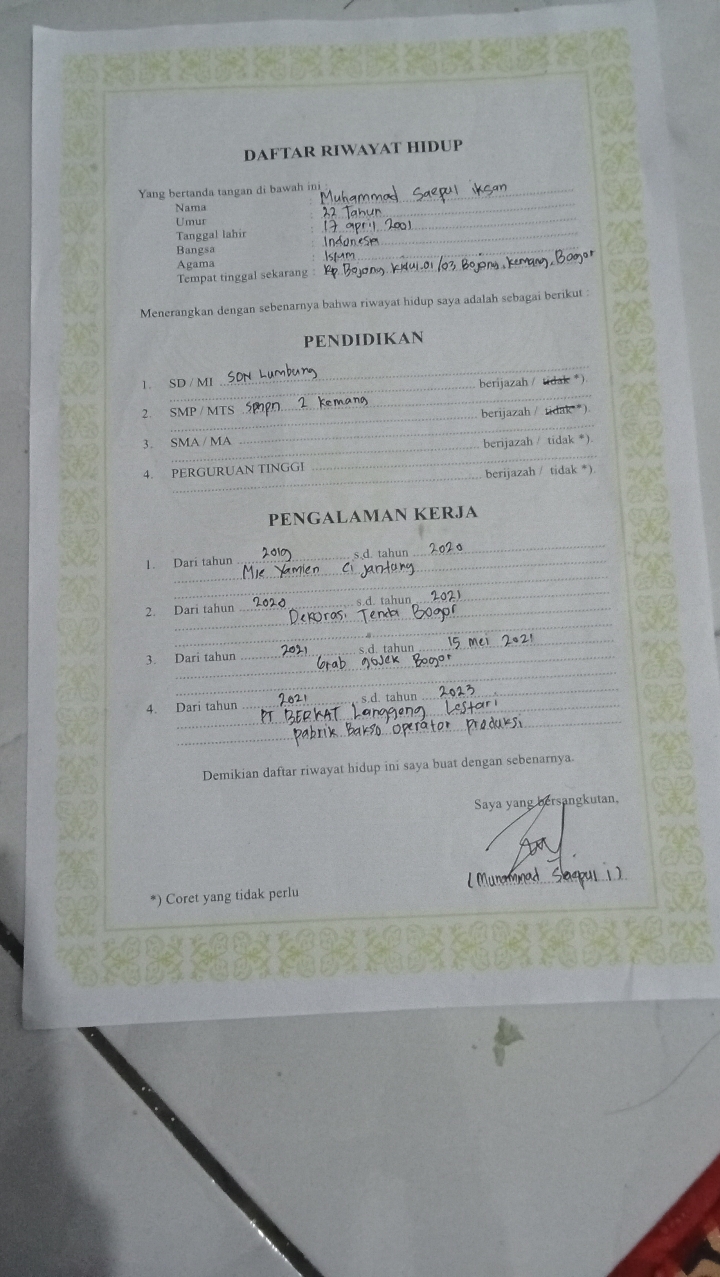 DAFTAR RIWAYAT HIDUP
Yang bertanda tangan di bawah ini
Nama : Muhammad Saepul iksan
Umur : 22 Tahun
Tanggal lahir : 17 april 2001
Bangsa : Indonesia
Agama : Islam
Tempat tinggal sekarang : Kp. Bojong Kidul.01/03, Bojong, Kemang, Bogor
Menerangkan dengan sebenarnya bahwa riwayat hidup saya adalah sebagai berikut :
PENDIDIKAN
1. SD / MI SDN Lumbung
berijazah / tidak *)
2. SMP / MTS Smpn 2 Kemang
berijazah / tidak *)
3. SMA / MA
berijazah / tidak *)
4. PERGURUAN TINGGI
berijazah / tidak *)
PENGALAMAN KERJA
1. Dari tahun 2019 s.d. tahun 2020
Mie Yamien Cijantang
2. Dari tahun 2020 s.d. tahun 2021
Dekorasi Tenda Bogor
3. Dari tahun 2021 s.d. tahun 15 mei 2021
Grab gojek Bogor
4. Dari tahun 2021 s.d. tahun 2023
PT BERKAT Langgeng Lestari
pabrik Bakso operator produksi
Demikian daftar riwayat hidup ini saya buat dengan sebenarnya.
Saya yang bersangkutan,
(Muhammad Saepul i)
*) Coret yang tidak perlu